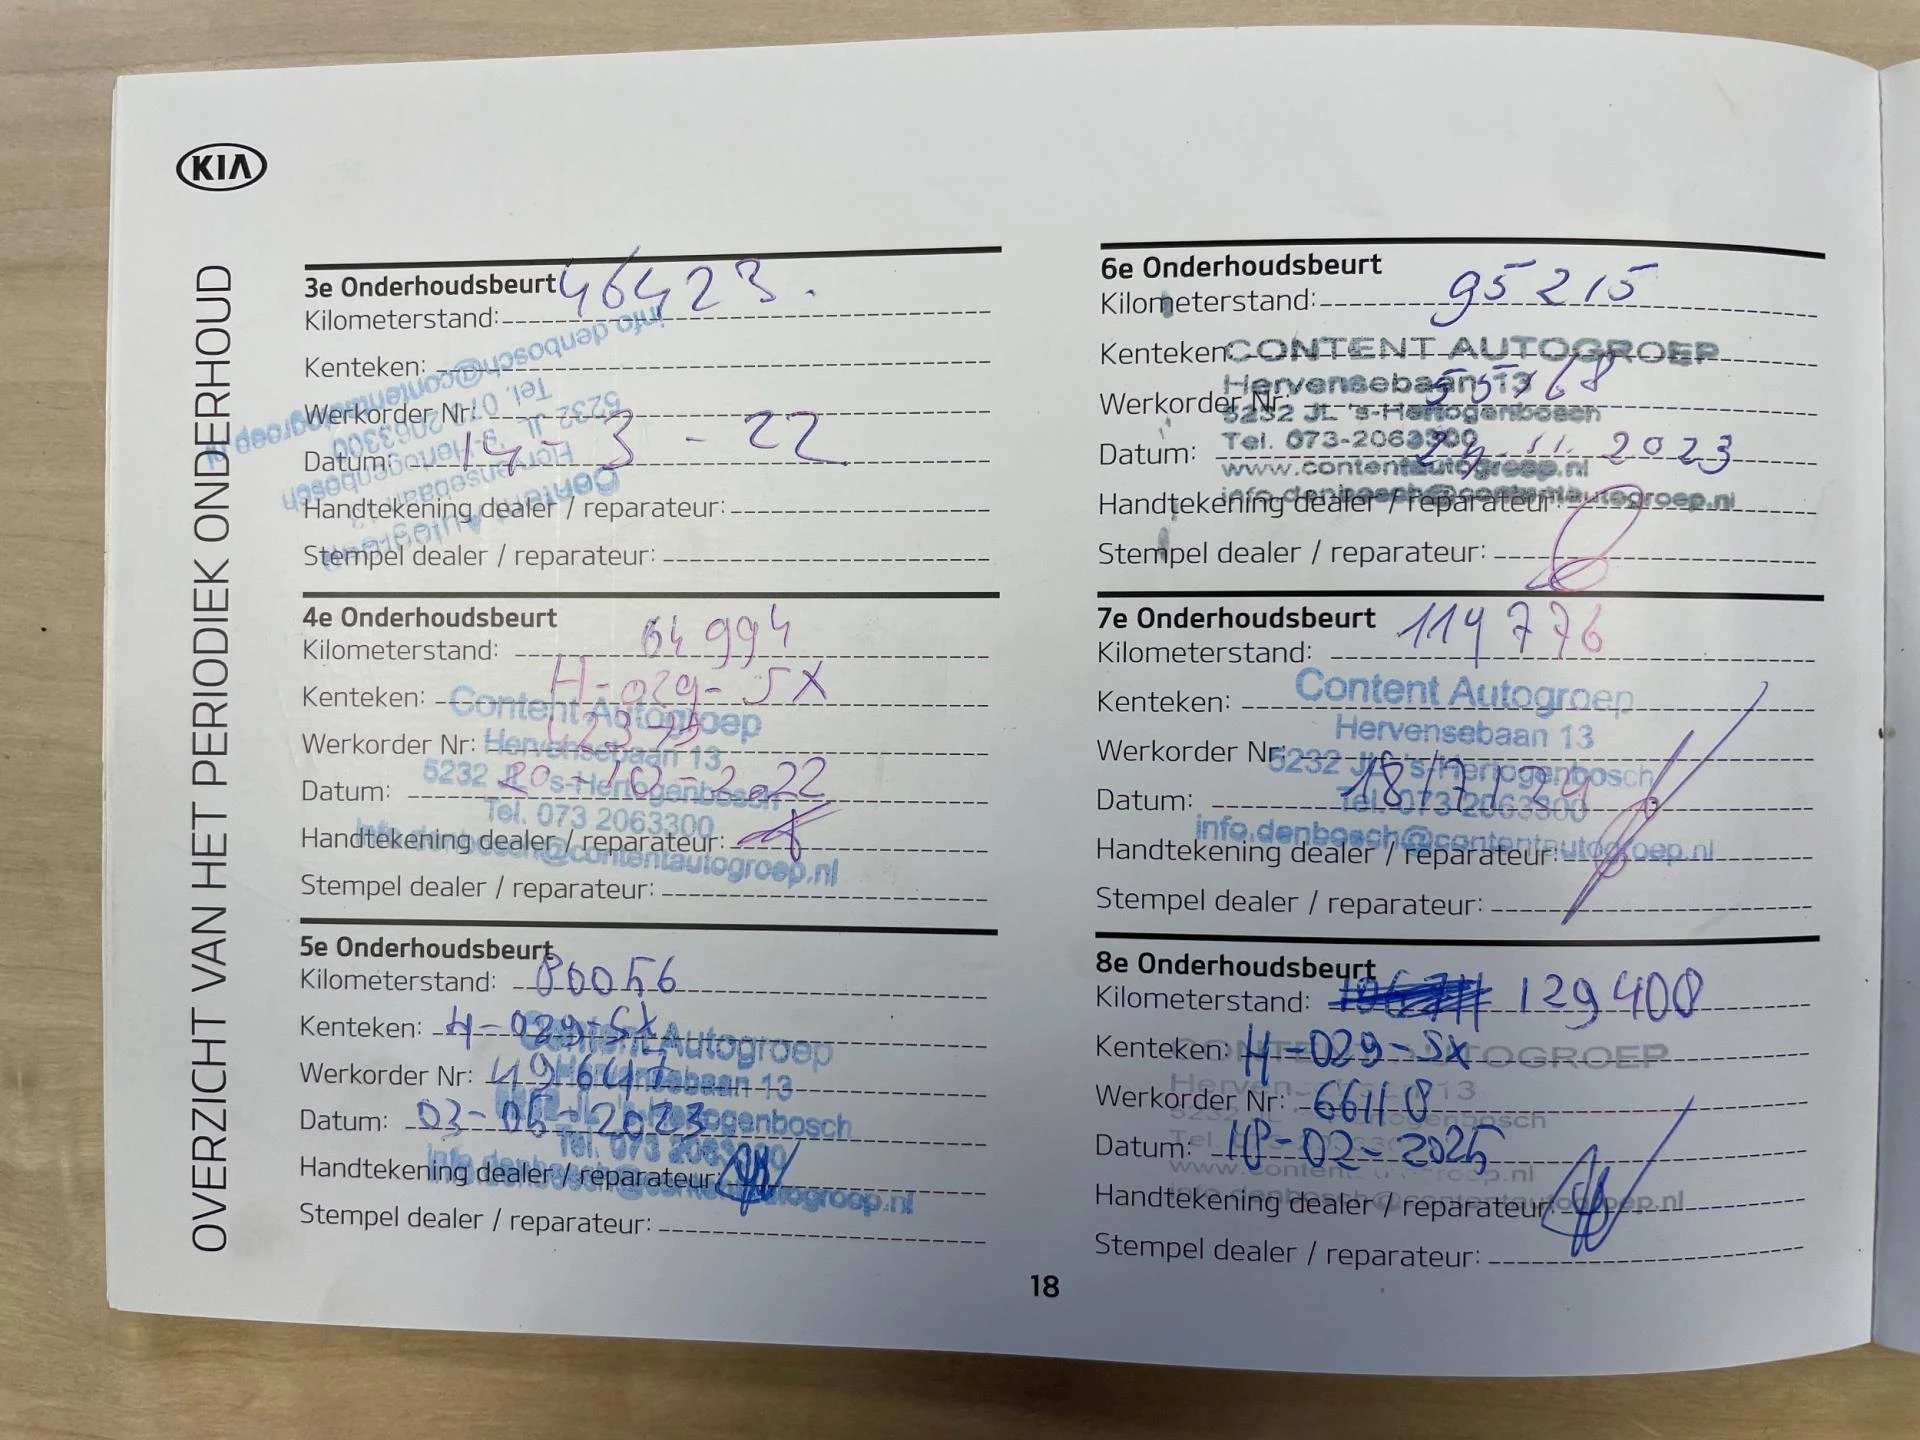 KIA
OVERZICHT VAN HET PERIODIEK ONDERHOUD
3e Onderhoudsbeurt 46423.
Kilometerstand:
Kenteken:
Werkorder Nr:
Datum: 14-3-22
Handtekening dealer / reparateur:
Stempel dealer / reparateur:
info.denbosch@contentautogroep.nl
Tel. 073 2063300
5232 JL 's-Hertogenbosch
Hervensebaan 13
Content Autogroep
4e Onderhoudsbeurt
Kilometerstand: 64994
Kenteken: H-029-SX
Werkorder Nr:
Datum: 20-10-2022
Handtekening dealer / reparateur:
Stempel dealer / reparateur:
Content Autogroep
Hervensebaan 13
5232 JL 's-Hertogenbosch
Tel. 073 2063300
info.denbosch@contentautogroep.nl
5e Onderhoudsbeurt
Kilometerstand: 80056
Kenteken: H-029-SX
Werkorder Nr: 49647
Datum: 03-05-2023
Handtekening dealer / reparateur:
Stempel dealer / reparateur:
Content Autogroep
Hervensebaan 13
5232 JL 's-Hertogenbosch
Tel. 073 2063300
info.denbosch@contentautogroep.nl
6e Onderhoudsbeurt
Kilometerstand: 95215
Kenteken:
Werkorder Nr:
Datum: 24-11-2023
Handtekening dealer / reparateur:
Stempel dealer / reparateur:
CONTENT AUTOGROEP
Hervensebaan 13
5232 JL 's-Hertogenbosch
Tel. 073-2063300
www.contentautogroep.nl
info.denbosch@contentautogroep.nl
7e Onderhoudsbeurt 114776
Kilometerstand:
Kenteken:
Werkorder Nr:
Datum: 18/7/24
Handtekening dealer / reparateur:
Stempel dealer / reparateur:
Content Autogroep
Hervensebaan 13
5232 JL 's-Hertogenbosch
Tel. 073 2063300
info.denbosch@contentautogroep.nl
8e Onderhoudsbeurt
Kilometerstand: 129400
Kenteken: H-029-SX
Werkorder Nr: 66118
Datum: 18-02-2025
Handtekening dealer / reparateur:
Stempel dealer / reparateur:
CONTENT AUTOGROEP
Hervensebaan 13
5232 JL 's-Hertogenbosch
www.contentautogroep.nl
info.denbosch@contentautogroep.nl
18